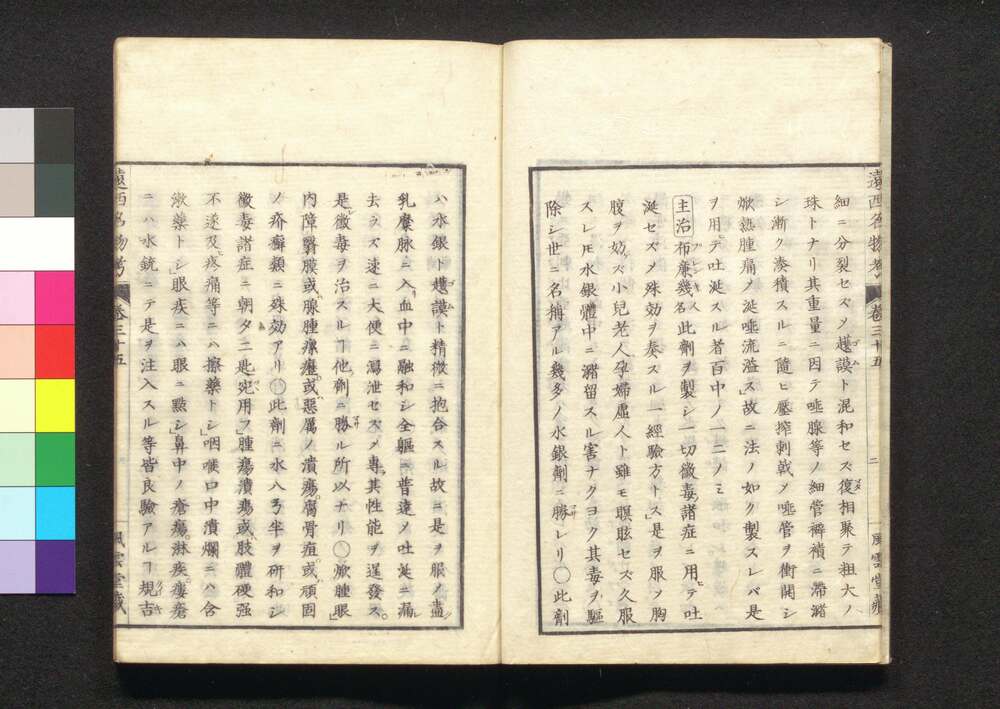 遠西名物考 巻三十五 二 風雲堂藏
細ニ分裂セズメ越謨ト混和セズ復相聚テ粗大ノ
珠トナリ其重量ニ因テ唾腺等ノ細管襞襀ニ滞瀦
シ漸ク湊積スルニ隨ヒ壓搾刺戟メ唾管ヲ衝開シ
焮熱腫痛ノ涎唾流溢ス故ニ法ノ如ク製スレバ是
ヲ用テ吐涎スル者百中ノ一二ノミ
主治 布廉幾名人此劑ヲ製シ一切黴毒諸症ニ用ヒテ吐
涎セズメ殊効ヲ奏スル一經驗方トス是ヲ服ノ胸
腹ヲ妨ズ小兒老人孕婦虛人ト雖モ瞑眩セズ久服
スレ𪜈水銀體中ニ瀦留スル害ナクヨク其毒ヲ驅
除シ世ニ名稱アル幾多ノ水銀劑ニ勝レリ○此劑
ハ水銀ト越謨ト精微ニ抱合スル故ニ是ヲ服ノ盡ク
乳糜脉ニ入血中ニ融和シ全軀ニ普達メ吐涎ニ漏
去ラズ速ニ大便ニ瀉泄セズメ專ラ其性能ヲ逞發ス
是黴毒ヲ治スルヿ他劑ニ勝ル所以ナリ○焮腫眼
内障瞖膜或腺腫瘰癧或惡厲ノ潰瘍腐骨疽或頑固
ノ疥癬類ニ殊効アリ○此劑ニ水八弓半ヲ研和シ
黴毒諸症ニ朝夕ニ匙宛用フ腫瘍潰瘍或肢體硬强
不遂及ヒ疼痛等ニハ擦藥トシ咽喉口中潰爛ニハ含
漱藥トシ眼疾ニハ眼ニ㸃シ鼻中ノ瘡瘍淋疾瘻瘡
ニハ水銃ニテ是ヲ注入スル等皆良驗アルヿ規吉
遠西名物考 巻三十五 風雲堂藏